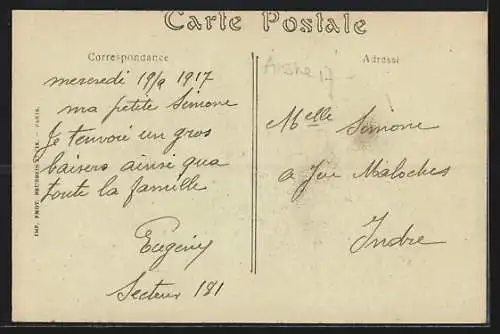 Carte Postale
Correspondance
Adresse
mercredi 19/9 1917
ma petite Simone
Je t'envoie un gros
baisers ainsi qua
toute la famille
Eugény
Secteur 181
Aisne 17
Melle Simone
a Jeu Maloches
Indre
IMP. PHOT. NEURDEIN ET Cie. — PARIS.